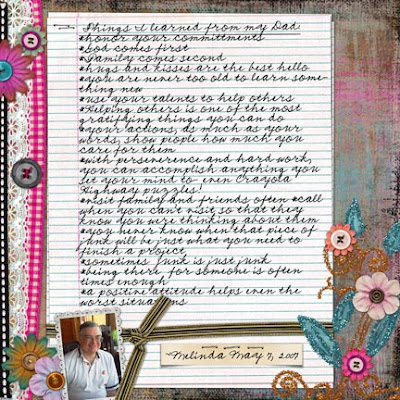 Things I learned from my Dad
*honor your committments
*God comes first
*Family comes second
*hugs and kisses are the best hello
*you are never too old to learn some-
thing new
*use your talents to help others
*Helping others is one of the most
gratifying things you can do
*your actions, as much as your
words, show people how much you
care for them
*with perseverence and hard work,
you can accomplish anything you
set your mind to even Crayola
Highway puzzles!
*visit family and friends often *call
when you can't visit so that they
know you were thinking about them
*you never know when that piece of
junk will be just what you need to
finish a project
*sometimes junk is just junk
*being there for someone is often
times enough
*a positive attitude helps even the
worst situations
~Melinda May 7, 2007